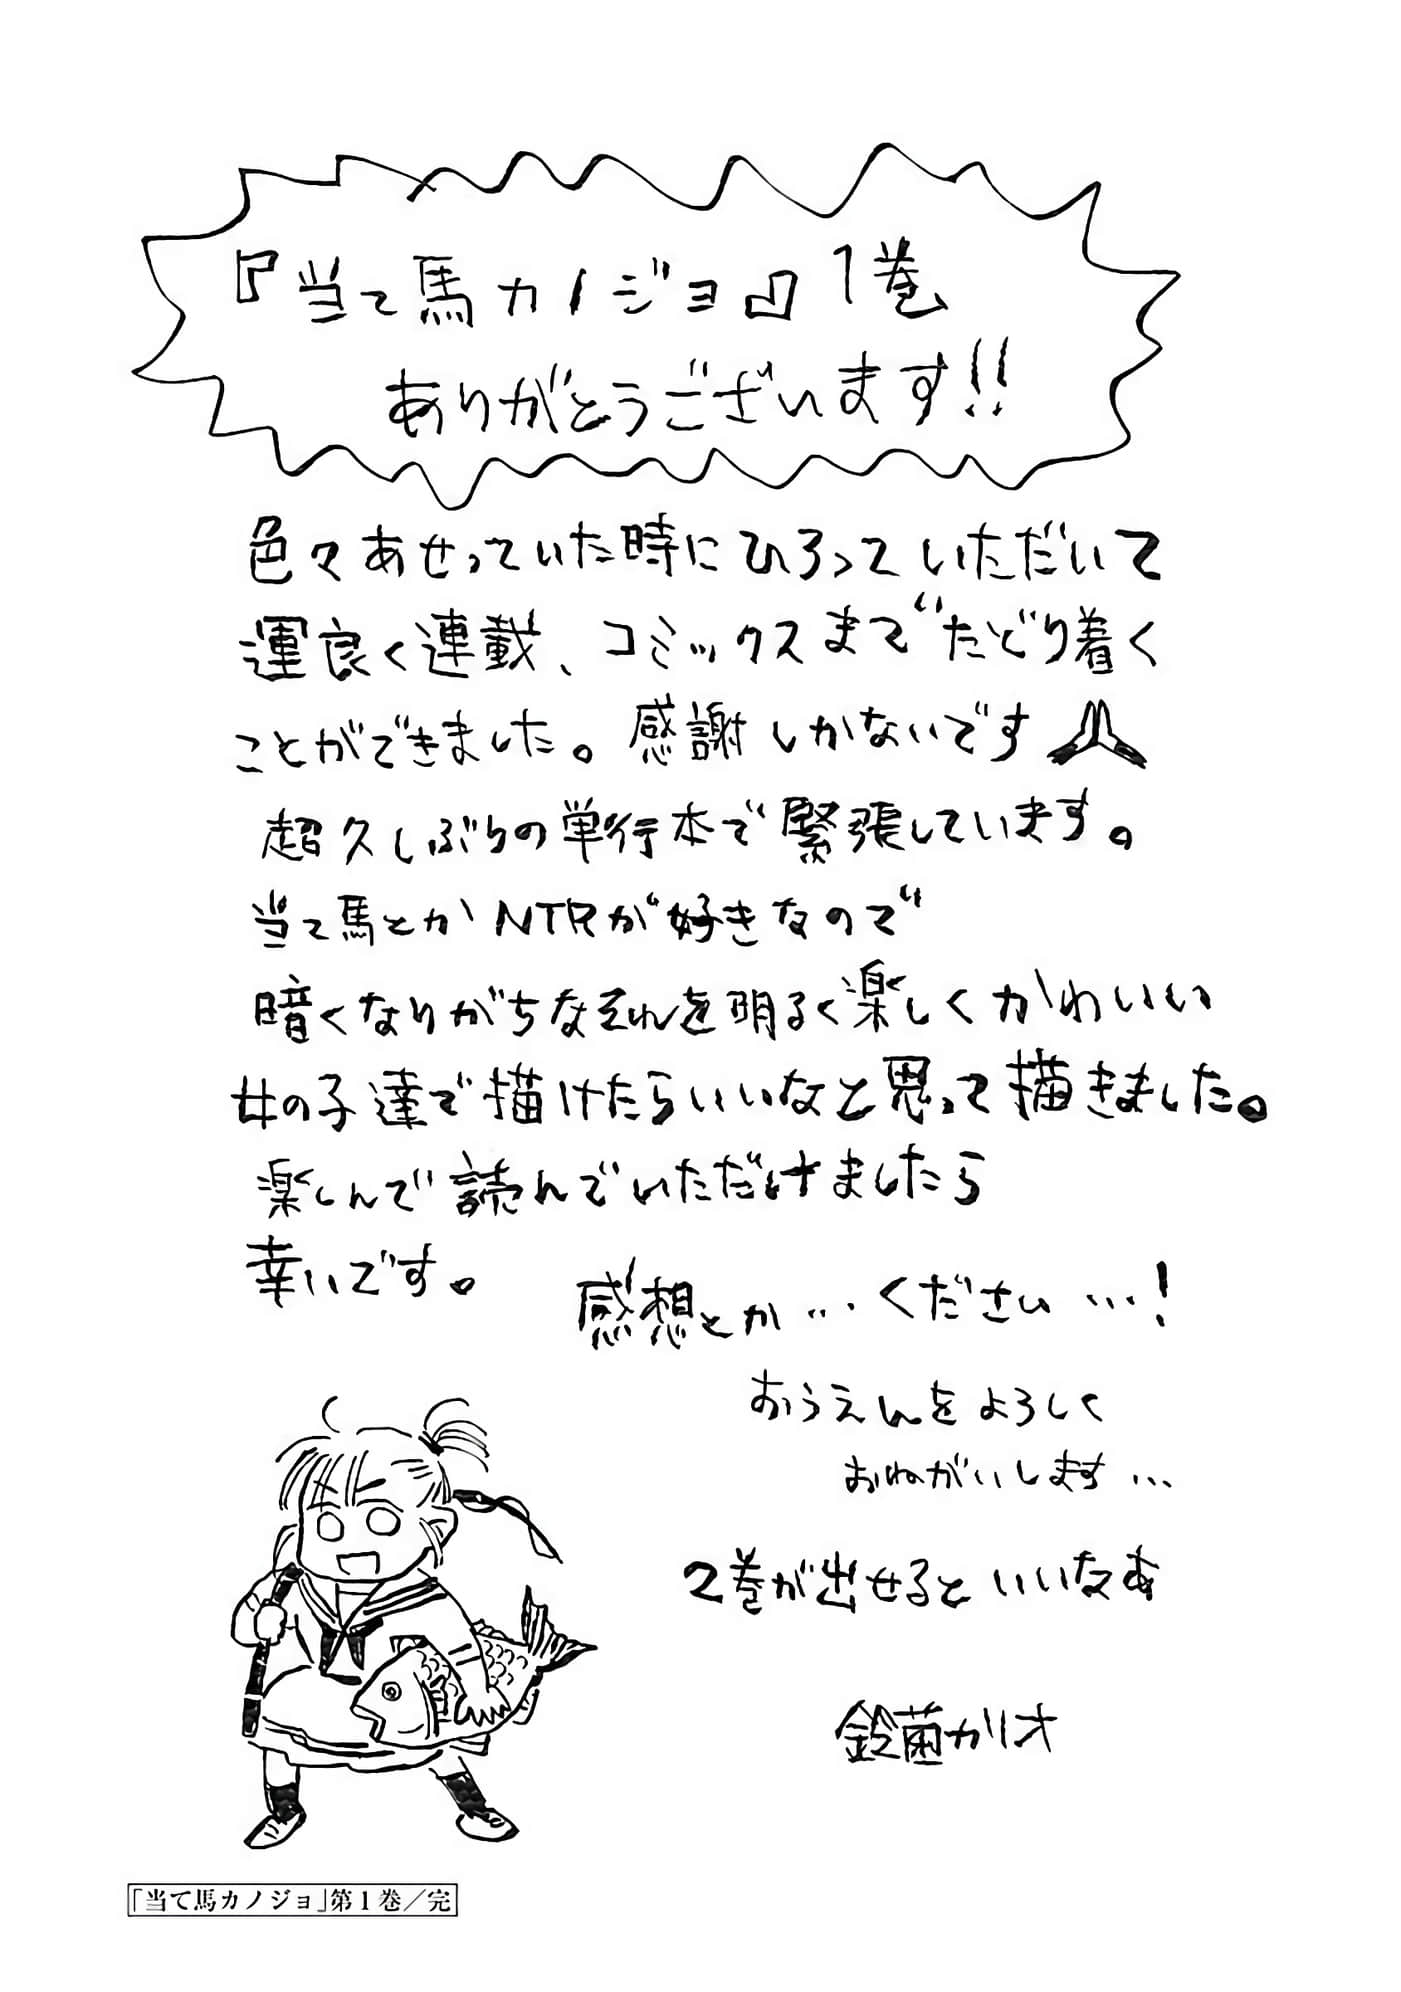 『当て馬カノジョ』1巻
ありがとうございます!!
色々あせっていた時にひろっていただいて
運良く連載、コミックスまでたどり着く
ことができました。感謝しかないです
超久しぶりの単行本で緊張しています。
当て馬とかNTRが好きなので
暗くなりがちなそれを明るく楽しくかわいい
女の子達で描けたらいいなと思って描きました。
楽しんで読んでいただけましたら
幸いです。
感想とか…ください…!
おうえんをよろしく
おねがいします…
2巻が出せるといいなあ
鈴菌カリオ
「当て馬カノジョ」第1巻/完